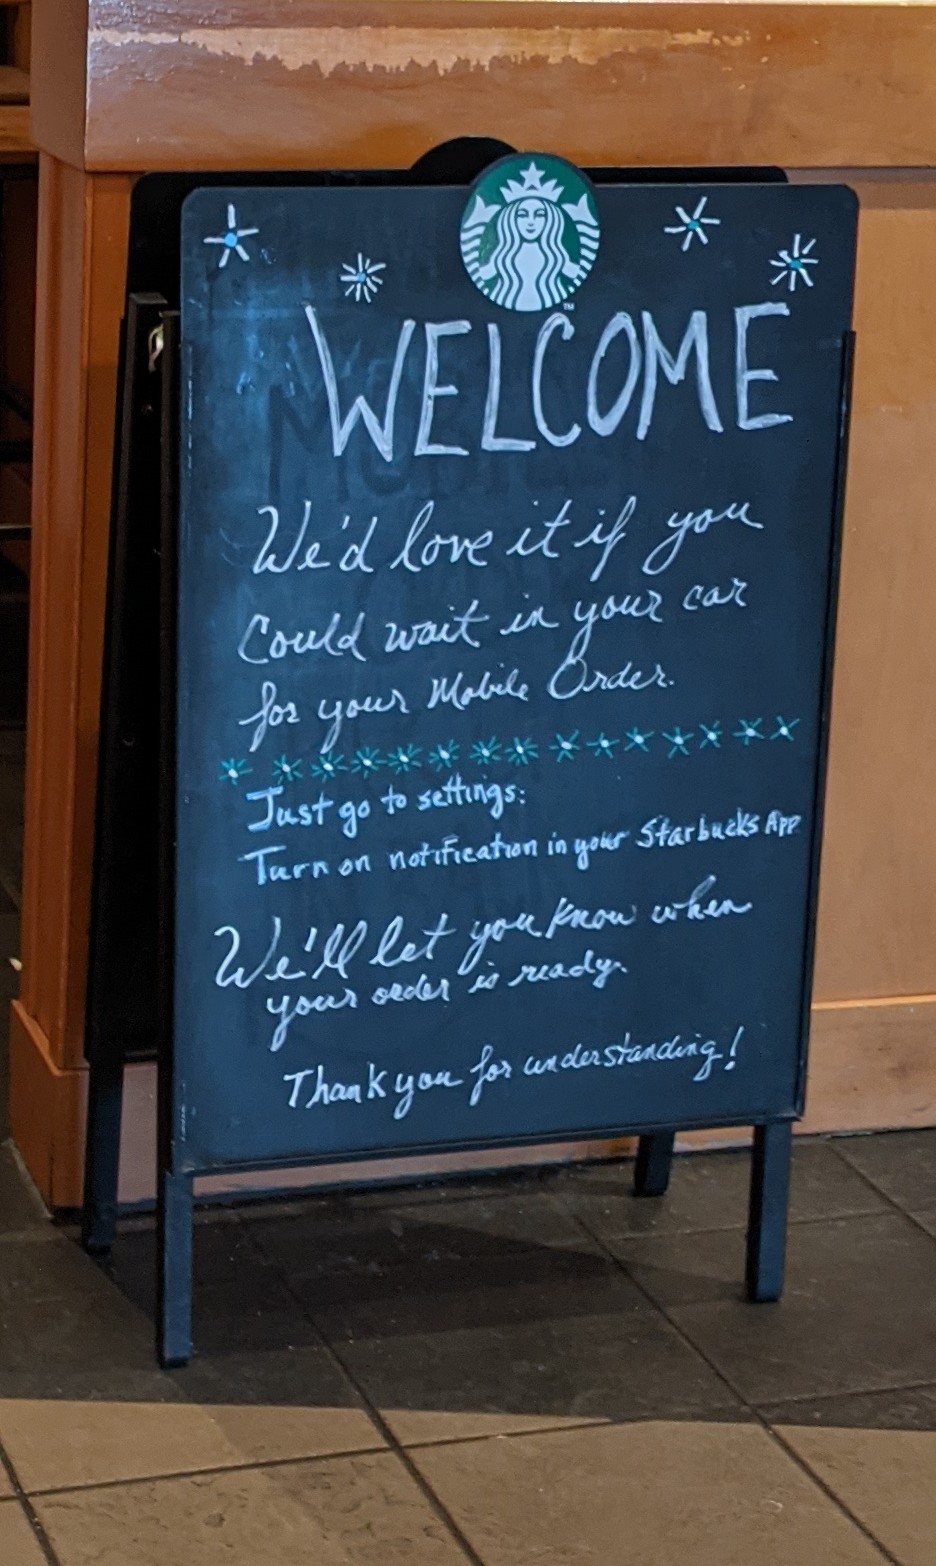 WELCOME
We'd love it if you
Could wait in your car
for your Mobile Order.
Just go to settings:
Turn on notification in your Starbucks App
We'll let you know when
your order is ready.
Thank you for understanding!